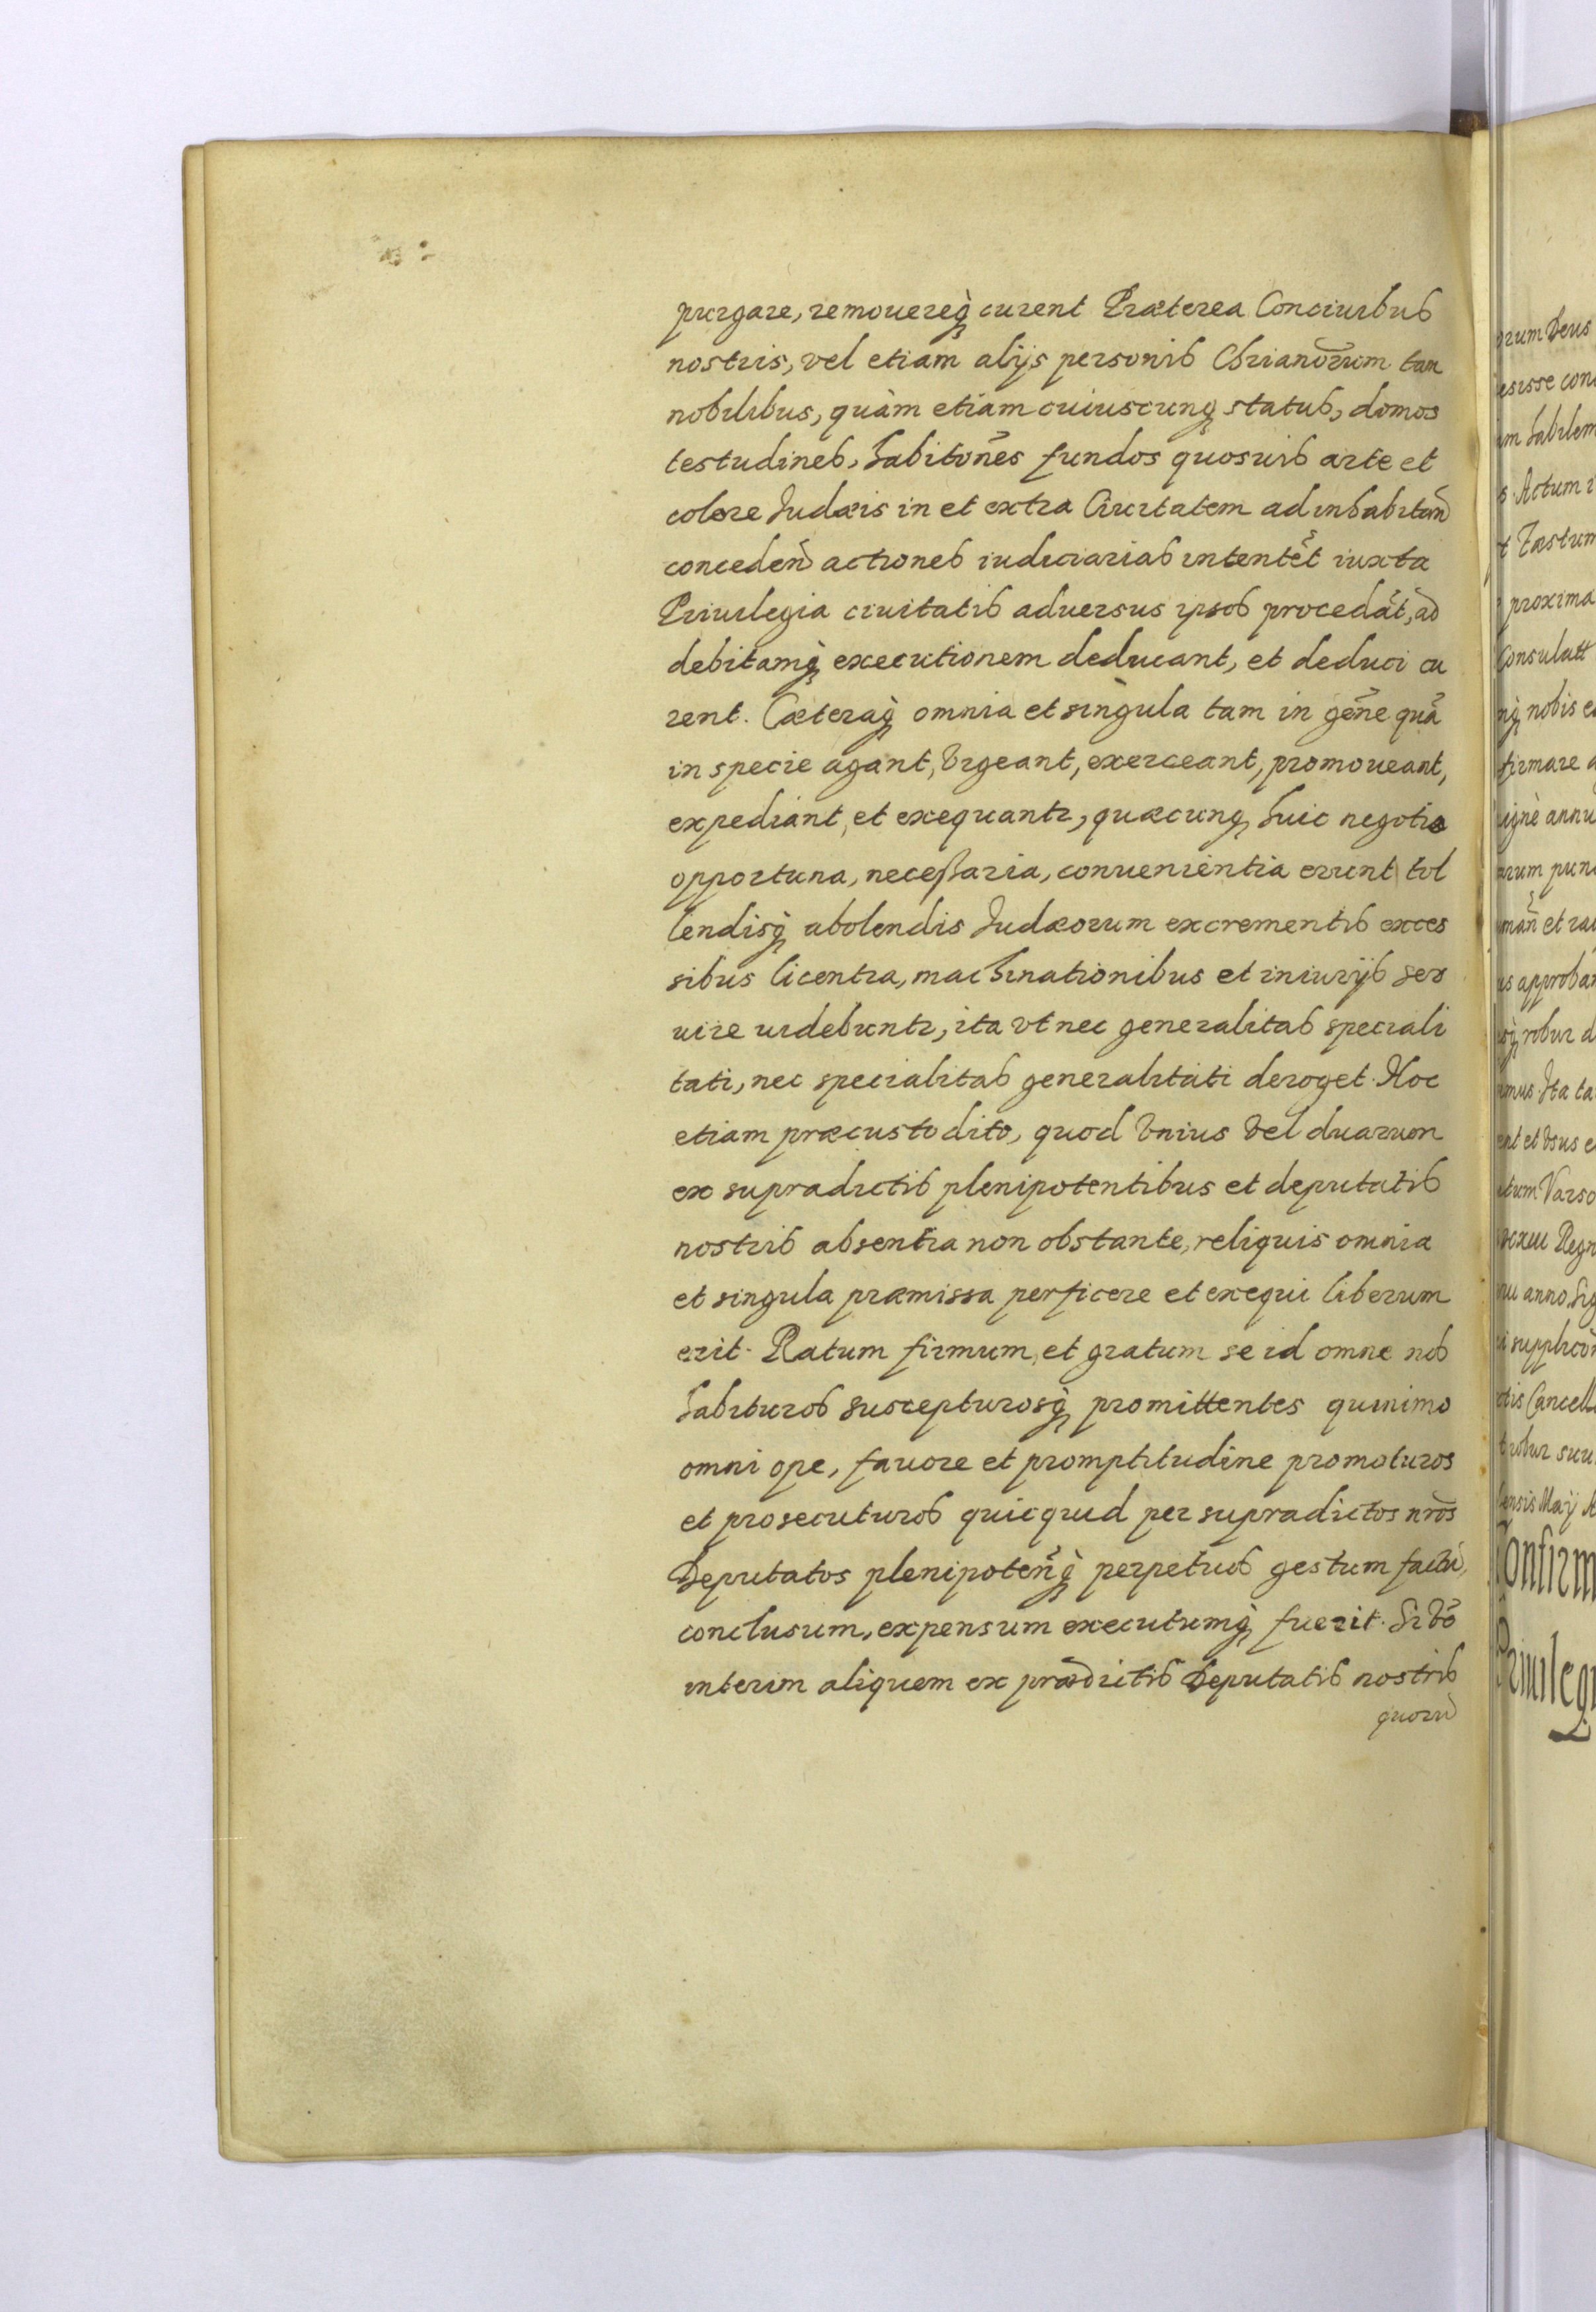 purgare, remouereq̀ʒ curent Præterea Conciuibus
nostris, vel etiam alijs personis Chrianõrum tam
nobilibus, quàm etiam cuiuscunqʒ status, domos
testudines, habitoñes fundos quosuis arte et
colore Judæis in et extra Ciuitatem ad inhabitañ
concedeñ actiones iudiciarias intentēt iuxta
Priuilegia ciuitatis aduersus ipsos procedāt, ad
debitamq̀ʒ executionem deducant, et deduci cu
rent. Cæteraq̀ʒ omnia et singula tam in gēne quā
in specie agant, vrgeant, exerceant, promoueant,
expediant, et exequantr, quæcunqʒ huic negotio
opportuna, neceßaria, conuenientia erunt tol
lendisq̀ʒ abolendis Judæorum excrementis exces
sibus licentia, machinationibus et iniurijs ser
uire uidebuntr, ita vt nec generalitas speciali
tati, nec specialitas generalitati deroget. Hoc
etiam præcustodito, quod vnius vel duarum
ex supradictis plenipotentibus et deputatis
nostris absentia non obstante, reliquis omnia
et singula præmissa perficere et exequi liberum
erit. Ratum firmum, et gratum se id omne nos
habituros suscepturosq̀ʒ promittentes quinimo
omni ope, fauore et promptitudine promoturos
et prosecuturos quicquid per supradictos nr̄os
Deputatos plenipoteñq̀ʒ perpetuos gestum factū,
conclusum, expensum executumq̀ʒ fuerit. Si vō
interim aliquem ex prædictis Deputatis nostris
quorū
orum Deus
Actum
proxima
nobis
firmare
annu
et
robur
Ita
et vsus
Regn
anno
Cancell
robur
Maij
Confirm
Priuileg